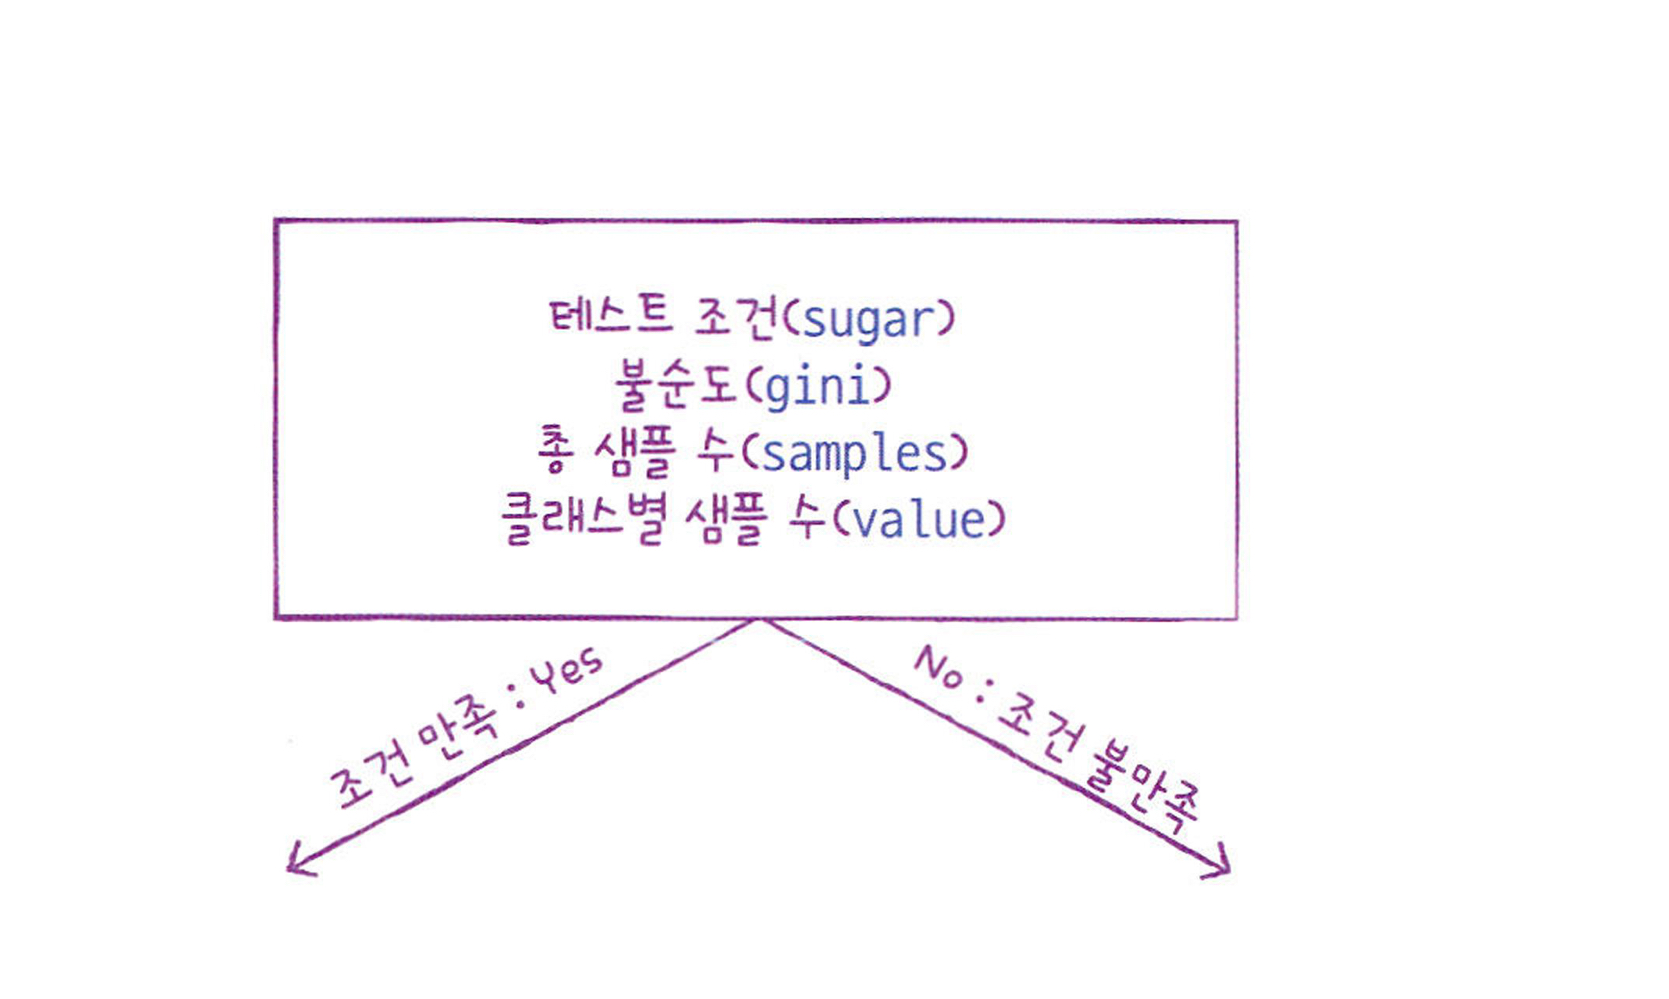 테스트 조건(sugar)
불순도(gini)
총 샘플 수(samples)
클래스별 샘플 수(value)
조건 만족 : Yes
No : 조건 불만족